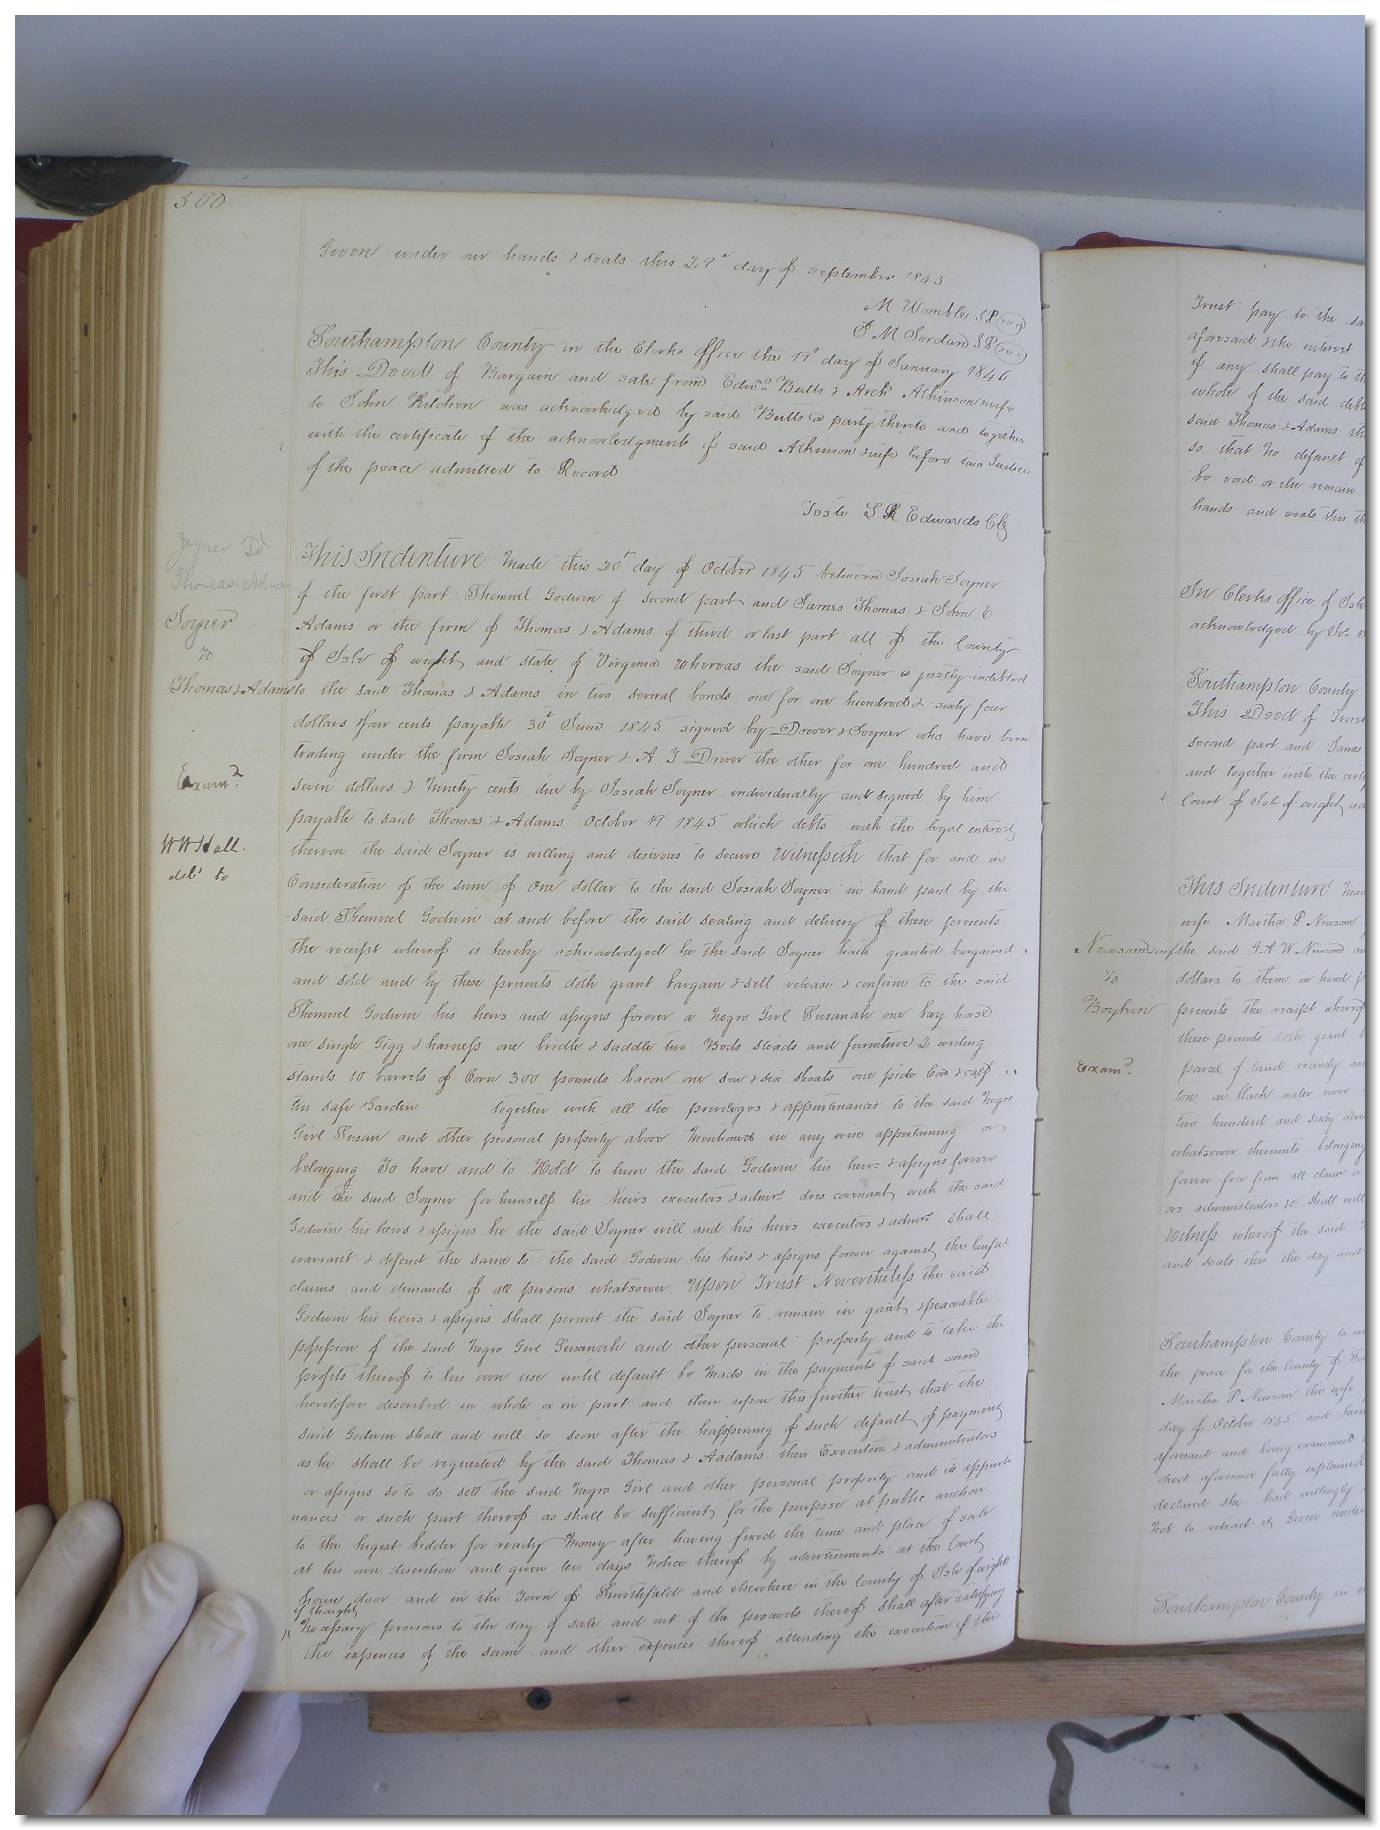 500
Given under our hands & seals this 29th day of September 1845
M Womble JP (seal)
J M Jordan JP (seal)
Southampton County in the Clerks office the 19th day of January 1846
This Deed of Bargain and sale from Edwd Butts & Arch Atkinson wife
to John Kitchen was acknowledged by said Butts a party thereto and together
with the certificate of the acknowledgment of said Atkinson wife before two Justices
of the peace admitted to Record
Teste L R Edwards Clk
Joyner To
Thomas & Adams
This Indenture Made this 20th day of October 1845 between Josiah Joyner
of the first part Shemuel Godwin of second part and James Thomas & John E
Joyner
to
Thomas & Adams
Adams or the firm of Thomas & Adams of third or last part all of the County
of Isle of wight and state of Virginia whereas the said Joyner is justly indebted
to the said Thomas & Adams in two several bonds one for one hundred & sixty four
dollars & four cents payable 30th June 1845 signed by Driver & Joyner who have been
trading under the firm Josiah Joyner & A J Driver the other for one hundred and
Examd
seven dollars & Ninety cents due by Josiah Joyner individually and signed by him
payable to said Thomas & Adams October 19 1845 which debts with the legal interest
W W Hall.
deld to
thereon the said Joyner is willing and desirous to secure Witnesseth that for and in
Consideration of the sum of One dollar to the said Josiah Joyner in hand paid by the
said Shemuel Godwin at and before the said sealing and delivery of these presents
the receipt whereof is hereby acknowledged he the said Joyner hath granted bargained
and sold and by these presents doth grant bargain & sell release & confirm to the said
Shemuel Godwin his heirs and assigns forever a Negro Girl Susanah one bay horse
one single Gigg & harness one bridle & saddle two Beds steads and furniture 2 writing
stands 10 barrels of Corn 300 pounds bacon one sow & six shoats one pide Cow & calf
tin safe Garden together with all the privileges & appurtenances to the said Negro
Girl Susan and other personal property above Mentioned in any wise appertaining or
belonging To have and to Hold to him the said Godwin his heirs & assigns forever
and the said Joyner for himself his heirs executors & admors does covenant with the said
Godwin his heirs & assigns he the said Joyner will and his heirs executors & admors shall
warrant & defend the same to the said Godwin his heirs & assigns forever against the lawful
claims and demands of all persons whatsoever Upon Trust Nevertheless the said
Godwin his heirs & assigns shall permit the said Joyner to remain in quiet & peaceable
possession of the said Negro Girl Susanah and other personal property and to take the
profits thereof to his own use until default be Made in the payments of said sum
heretofore described in whole or in part and then upon this further trust that the
said Godwin shall and will so soon after the happening of such default of payment
as he shall be requested by the said Thomas & Aadams their Executors & administrators
or assigns so to do sell the said Negro Girl and other personal property and its appurte
nances or such part thereof as shall be sufficient for the purpose at public auction
to the higest bidder for ready Money after having fixed the time and place of sale
at his own discretion and given ten days Notice thereof by advertisements at the Court
house door and in the Town of Smithfield and elsewhere in the County of Isle of wight
if thought
Necessary previous to the day of sale and out of the proceeds thereof shall after satisfying
the expences of the same and other expences thereof attending the execution of this
Trust pay to the
aforesaid & the interest
if any shall pay to
whole of the said
said Thomas & Adams
so that no default of
be void or else remain
hands and seals this
In Clerks office of Isle
acknowledged by
Southampton County
This Deed of Trust
second part and James
and together with the
Court of Isle of wight
This Indenture
wife Martha P Newsom
Newsom & wife
to
Boykin
the said G. A W. Newsom
dollars to them in hand
presents the receipt whereof
these presents doth grant
Examd.
parcel of land
ton on black water
two hundred and sixty
whatsoever thereunto belonging
forever free from all claim
ors administrators &c shall
Witness whereof the said
and seals this the day and
Southampton County to
the peace for the County of
Martha P Newsom the wife
day of October 1845 and
aforesaid and being examined
deed aforesaid fully explained
declared she had willingly
Not to retract it Given under
Southampton County in